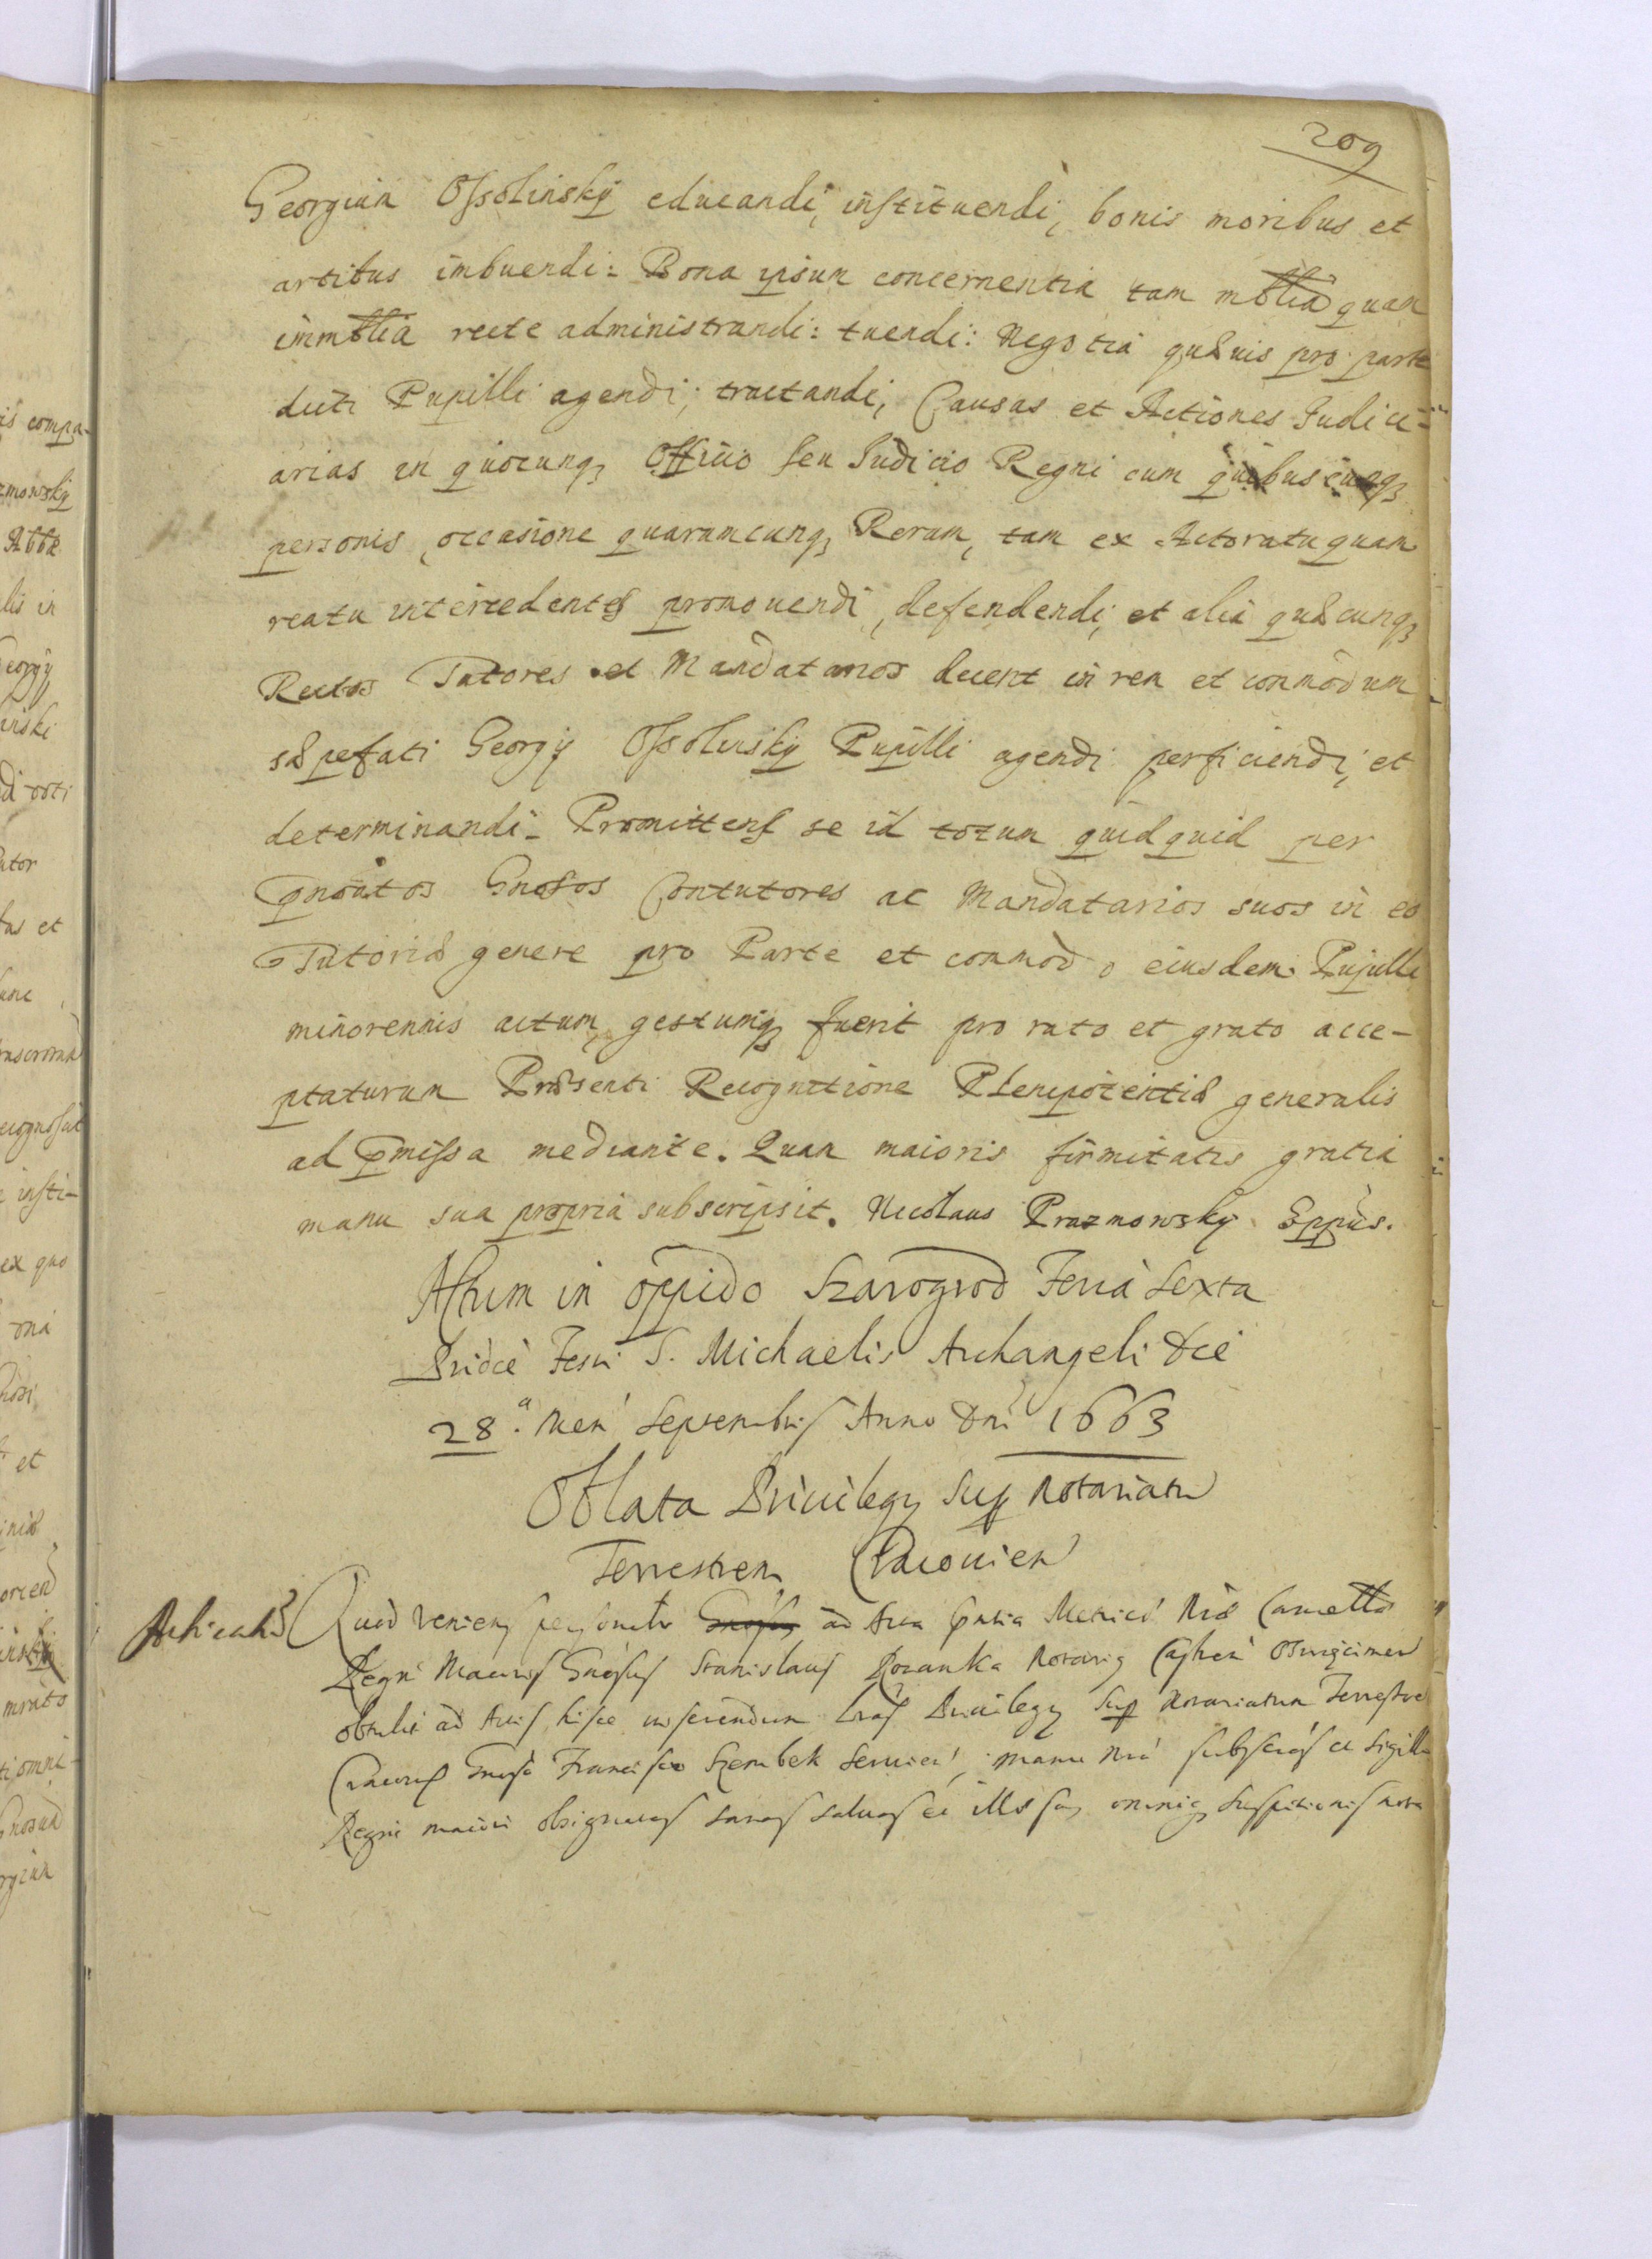 209
Georgium Ossolinsky educandi, instituendi, bonis moribus et
artibus imbuendi: Bona ipsum concernentia tam mblia quam
immblia recte administrandi: tuendi: Negotia quævis pro parte
dicti Pupilli agendi, tractandi, Causas et Actiones Judici-
arias in quocunq Officio seu Judicio Regni cum quibuscunq
personis, occasione quarumcunq Rerum, tam ex Actoratu quam
reatu intercedentes promovendi, defendendi, et alia quæcunq
Rectos Tutores et Mandatarios decent in rem et commodum
sæpefati Georgy Ossolinsky Pupilli agendi perficiendi, et
determinandi. Promittens se id totum quidquid per
pnoatos Gnosos Contutores ac Mandatarios suos in eo
Tutoriæ genere pro Parte et commodo eiusdem Pupilli
minorennis actum gestumq fuerit pro rato et grato acce-
ptaturum Præsenti Recognitione Plenipotentiæ generalis
ad pmissa mediante. Quam maioris firmitatis gratia
manu sua propria subscripsit. Nicolaus Prazmowsky Eppus.
Actum in oppido Szarogrod Feria sexta
Pridie Festi S. Michaelis Archangeli die
28.a Men Septembris Anno Dni 1663
Oblata Privilegy sup Notariatu
Terrestrem Cracovien
Quod veniens personalr Gnosus ad Acta pntia Metrices Nræ Cancellæ
Regni Maioris Gnosus Stanislaus Rozanka Notarius Castren Oswięcimen
obtulit ad Actis hisce inserendum Lras Privilegy sup Notariatum Terrestre
Cracovien Gnoso Francisco Szembek servien, manu nra subscras et Sigillo
Regni maiori obsignatas sanas salvas et illæsas omniq suspitionis nota